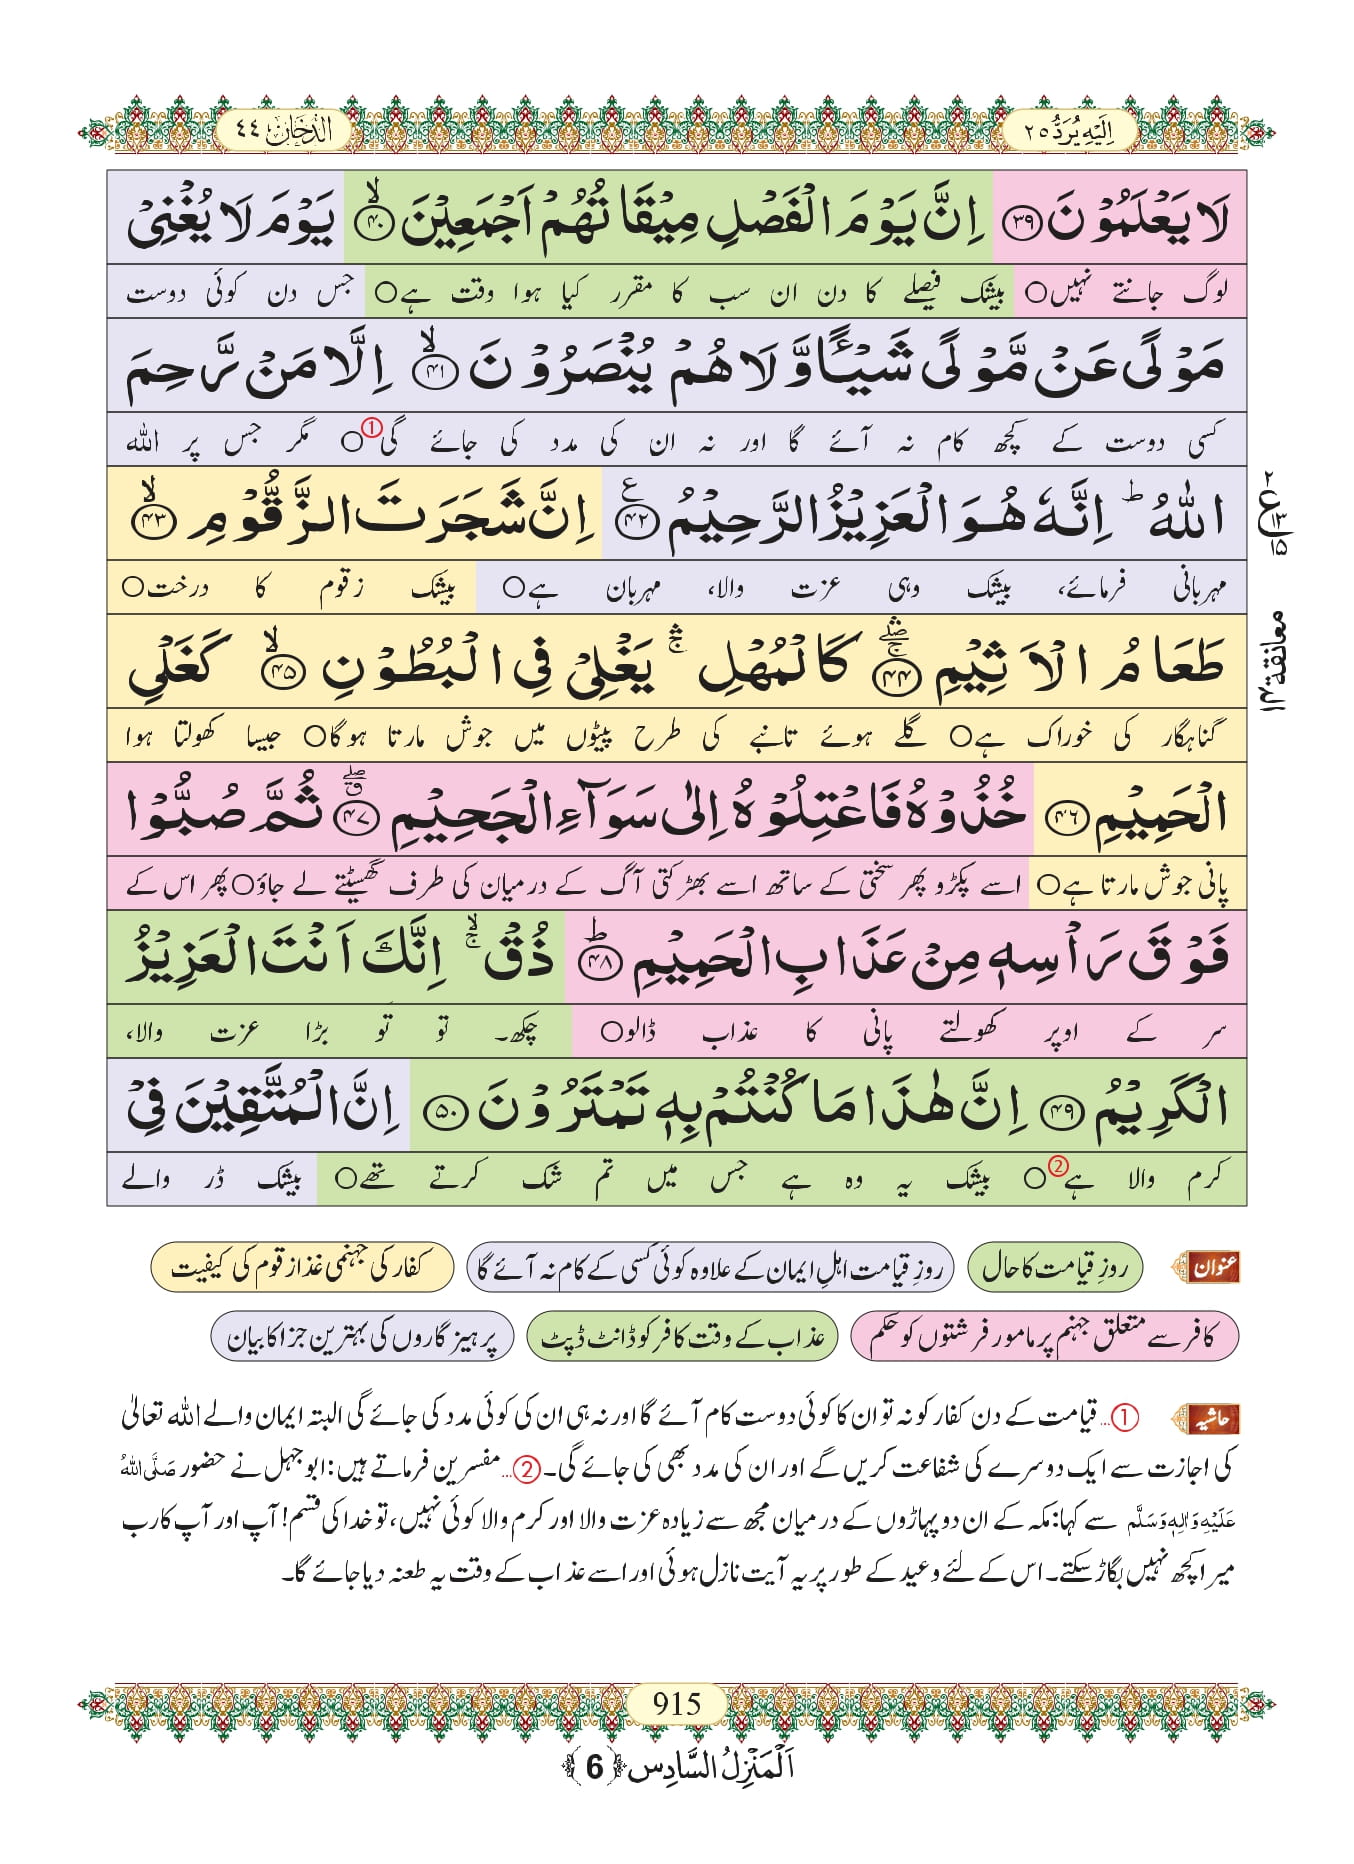 اِلَیْهِ یُرَدُّ ٢٥
الدُّخَان ٤٤
لَا یَعْلَمُوْنَ ﴿۳۹﴾ اِنَّ یَوْمَ الْفَصْلِ مِیْقَاتُهُمْ اَجْمَعِیْنَ ﴿۴۰﴾ۙ یَوْمَ لَا یُغْنِیْ
لوگ جانتے نہیں○ بیشک فیصلے کا دن ان سب کا مقرر کیا ہوا وقت ہے○ جس دن کوئی دوست
مَوْلًی عَنْ مَّوْلًی شَیْــٴًـا وَّ لَا هُمْ یُنْصَرُوْنَ ﴿۴۱﴾ۙ اِلَّا مَنْ رَّحِمَ
کسی دوست کے کچھ کام نہ آئے گا اور نہ ان کی مدد کی جائے گی①○ مگر جس پر اللہ
اللّٰهُؕ اِنَّهٗ هُوَ الْعَزِیْزُ الرَّحِیْمُ ﴿۴۲﴾ع اِنَّ شَجَرَتَ الزَّقُّوْمِ ﴿۴۳﴾ۙ
مہربانی فرمائے، بیشک وہی عزت والا، مہربان ہے○ بیشک زقوم کا درخت○
طَعَامُ الْاَثِیْمِ ﴿۴۴﴾ۚۖۛ كَالْمُهْلِۚۛ یَغْلِیْ فِی الْبُطُوْنِ ﴿۴۵﴾ۙ كَغَلْیِ
گناہگار کی خوراک ہے○ گلے ہوئے تانبے کی طرح پیٹوں میں جوش مارتا ہوگا○ جیسا کھولتا ہوا
الْحَمِیْمِ ﴿۴۶﴾ خُذُوْهُ فَاعْتِلُوْهُ اِلٰی سَوَآءِ الْجَحِیْمِ ﴿۴۷﴾ۗۖ ثُمَّ صُبُّوْا
پانی جوش مارتا ہے○ اسے پکڑو پھر سختی کے ساتھ اسے بھڑکتی آگ کے درمیان کی طرف گھسیٹتے لے جاؤ○ پھر اس کے
فَوْقَ رَاْسِهٖ مِنْ عَذَابِ الْحَمِیْمِ ﴿۴۸﴾ؕ ذُقْۚۙ اِنَّكَ اَنْتَ الْعَزِیْزُ
سر کے اوپر کھولتے پانی کا عذاب ڈالو○ چکھ۔ تو تو بڑا عزت والا،
الْكَرِیْمُ ﴿۴۹﴾ اِنَّ هٰذَا مَا كُنْتُمْ بِهٖ تَمْتَرُوْنَ ﴿۵۰﴾ اِنَّ الْمُتَّقِیْنَ فِیْ
کرم والا ہے②○ بیشک یہ وہ ہے جس میں تم شک کرتے تھے○ بیشک ڈر والے
٢ ع ١٣ ١٥
معانقة ١٤
عنوان روزِ قیامت کا حال روزِ قیامت اہلِ ایمان کے علاوہ کوئی کسی کے کام نہ آئے گا کفار کی جہنمی غذا زقوم کی کیفیت
کافر سے متعلق جہنم پر مامور فرشتوں کو حکم عذاب کے وقت کافر کو ڈانٹ ڈپٹ پرہیزگاروں کی بہترین جزا کا بیان
حاشیہ ①... قیامت کے دن کفار کو نہ تو ان کا کوئی دوست کام آئے گا اور نہ ہی ان کی کوئی مدد کی جائے گی البتہ ایمان والے اللہ تعالیٰ
کی اجازت سے ایک دوسرے کی شفاعت کریں گے اور ان کی مدد بھی کی جائے گی۔ ②... مفسرین فرماتے ہیں: ابوجہل نے حضور صَلَّی اللهُ
عَلَیْهِ وَاٰلِهٖ وَسَلَّم سے کہا: مکہ کے ان دو پہاڑوں کے درمیان مجھ سے زیادہ عزت والا اور کرم والا کوئی نہیں، تو خدا کی قسم! آپ اور آپ کا رب
میرا کچھ نہیں بگاڑ سکتے۔ اس کے لئے وعید کے طور پر یہ آیت نازل ہوئی اور اسے عذاب کے وقت یہ طعنہ دیا جائے گا۔
915
اَلْمَنْزِلُ السَّادِس ﴿6﴾